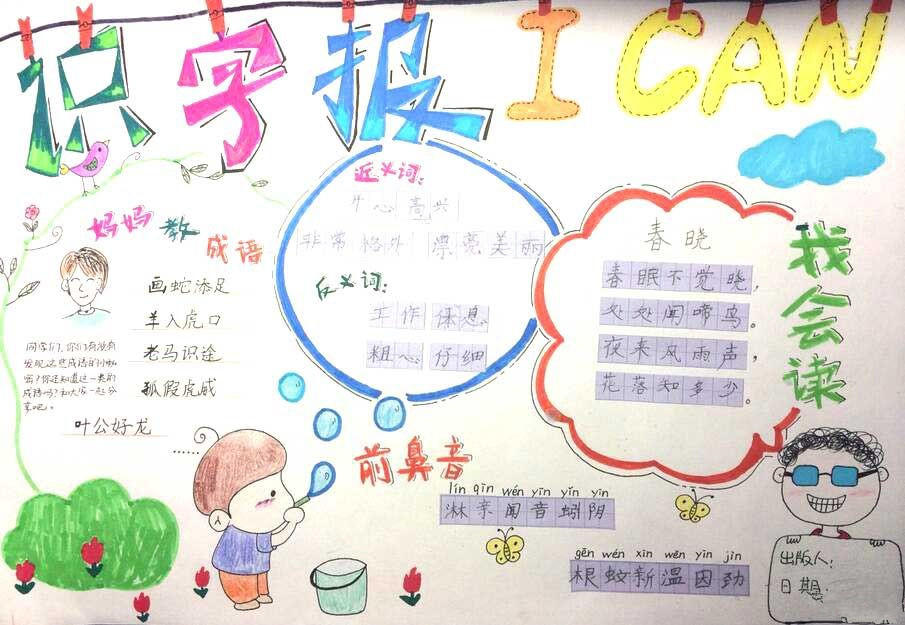 识字报 I CAN
妈妈教
成语
画蛇添足
羊入虎口
老马识途
狐假虎威
叶公好龙
……
同学们,你们有没有
发现这些成语的
呢?你还知道这一类的
成语吗?和大家一起分
享吧。
近义词:
开心 高兴
非常 格外 漂亮 美丽
反义词:
工作 休息
粗心 仔细
春晓
春眠不觉晓,
处处闻啼鸟。
夜来风雨声,
花落知多少。
我会读
前鼻音
lín qīn wén yīn yǐn yīn
淋亲闻音蚓阴
gēn wén xīn wēn yīn jìn
根蚊新温因劲
出版人:
日期: